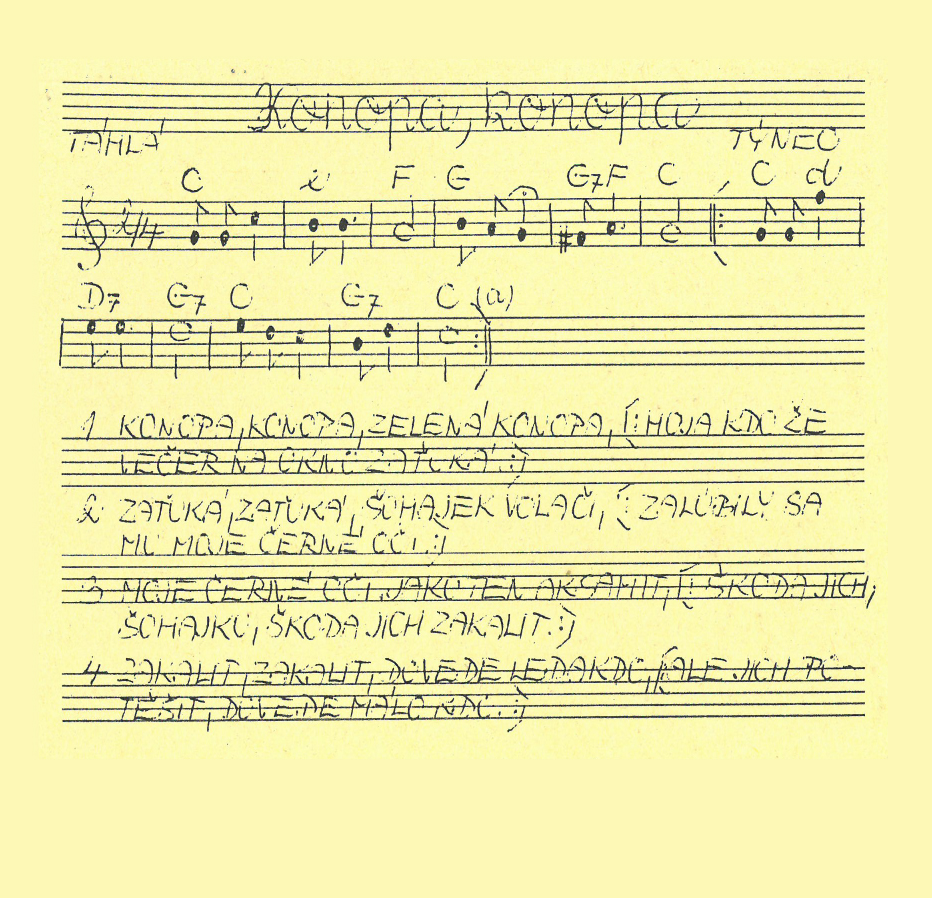 Konopa, konopa
TÁHLÁ TÝNEC
C e F G G7F C C d
2/4
D7 G7 C G7 C (a)
1 KONOPA, KONOPA, ZELENÁ KONOPA, [: MOJA KDO ŽE
VEČER NA OKNO ZAŤUKÁ :]
2 ZAŤUKÁ, ZAŤUKÁ, ŠOHAJEK VOLAČÍ, [: ZALÚBILY SA
MU MOJE ČERNÉ OČI :]
3 MOJE ČERNÉ OČI, JAKO TEN AKSAMIT, [: ŠKODA JICH,
ŠOHAJKU, ŠKODA JICH ZAKALIT. :]
4 ZAKALIT, ZAKALIT, DOVEDE LEDAKDO, [: ALE JICH PO-
TĚŠIT, DOVEDE MÁLO KDO. :]